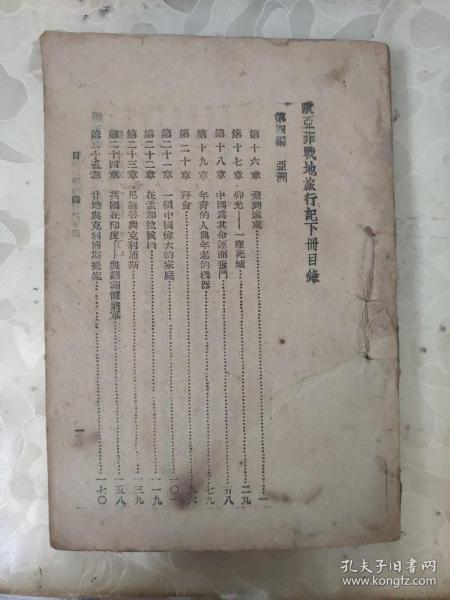 歐亞非戰地旅行記下冊目錄
第四編 亞洲
第十六章 飛到遠東……一
第十七章 仰光——一座死城……二九
第十八章 中國爲其命運而奮鬥……五八
第十九章 年青的人與年老的機器……七九
第二十章 拜會……九六
第二十一章 一個中國偉大的家庭……一〇一
第二十二章 在孟加拉……一一九
第二十三章 尼赫魯與克利浦斯……一三九
第二十四章 英國在印度——與魏菲爾將軍……一五八
第二十五章 甘地與克利浦斯提案……一七〇
目
一
孔夫子旧书网
www.kongfz.com